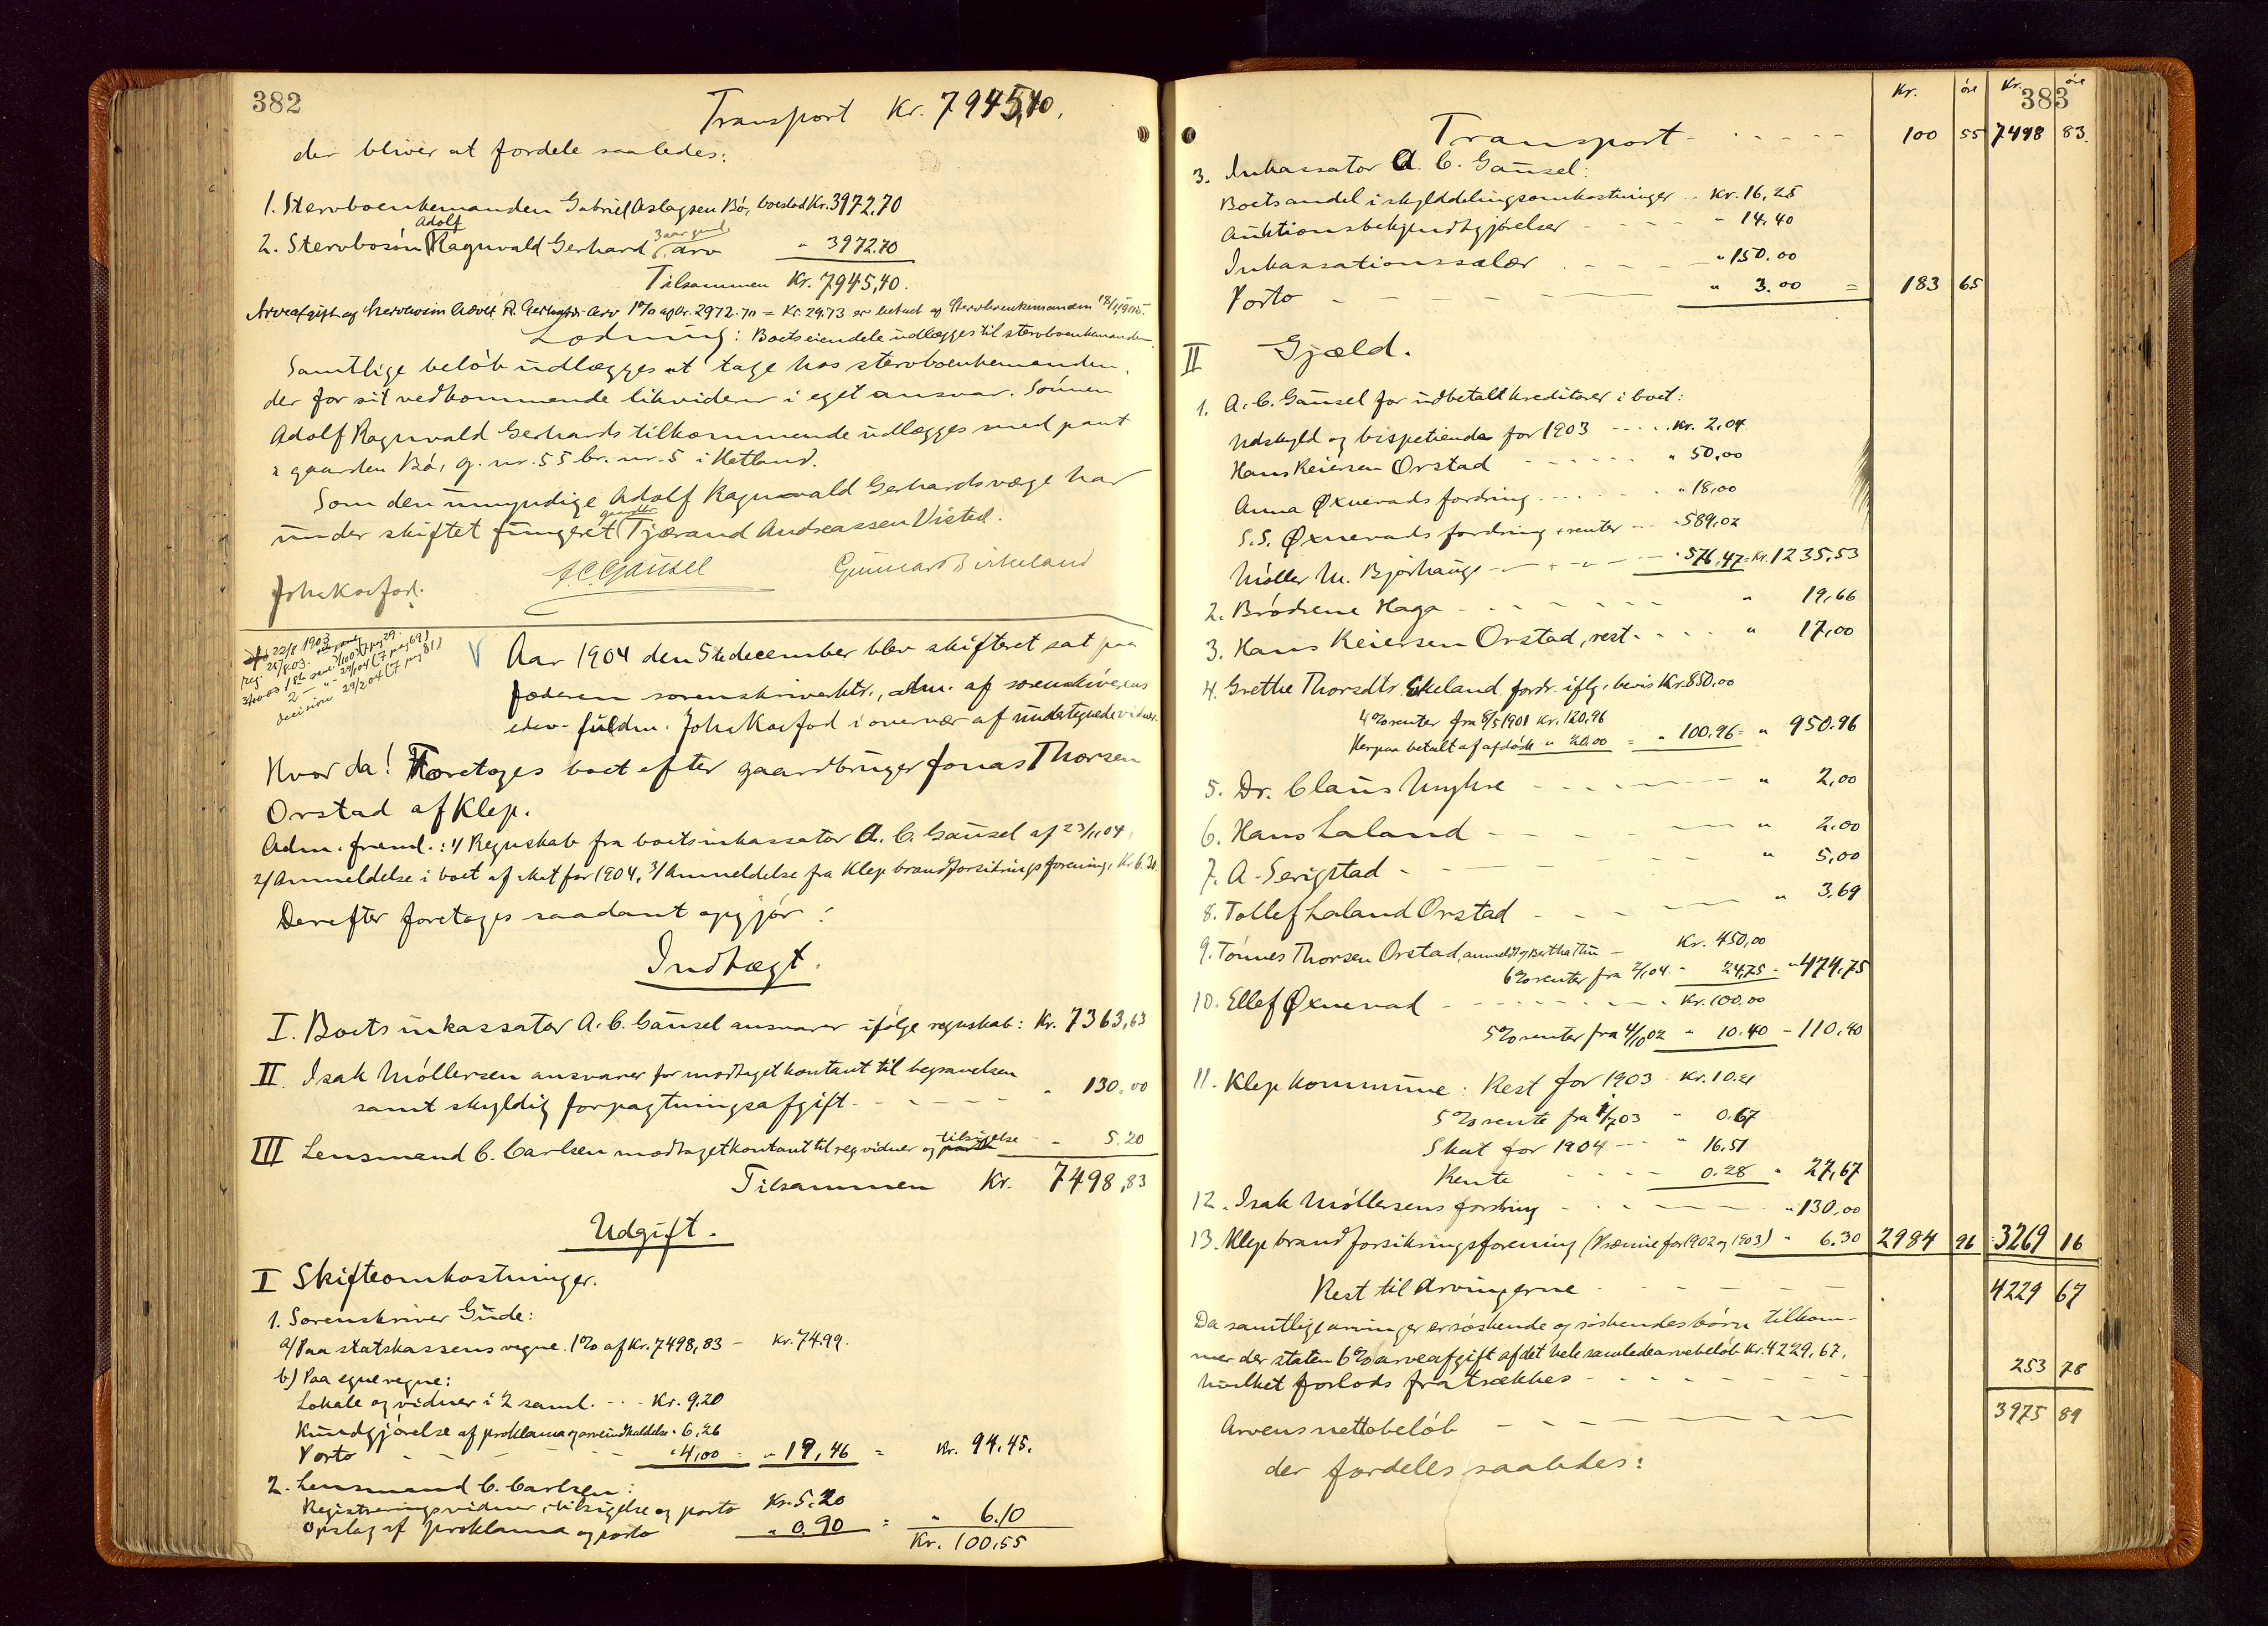 382
Transport Kr. 7945,40.
der bliver at fordele saaledes:
1. Stervboenkemanden Gabriel Aslagsen Bø, boeslod Kr. 3972,70
Adolf 3 aar gml.
2. Stervbosøn Ragnvald Gerhard arv " 3972.70
Tilsammen Kr. 7945,40.
Arveafgift af stervbosøn Adolf R. Gerhards arv 1% af Kr. 2972.70 = Kr. 29.73 er betalt af Stervboenkemanden
Lodning: Boets eiendele udlægges til stervboenkemanden.
Samtlige beløb udlægges at tage hos stervboenkemanden,
der for sit vedkommende likviderer i eget ansvar. Sønnen
Adolf Ragnvald Gerhards tilkommende udlægges med pant
i gaarden Bø, g. nr. 55 br. nr. 5 i Hetland.
Som den umyndige Adolf Ragnvald Gerhards værge har
gaardbr.
under skiftet fungeret Tjærand Andreassen Visted.
Joh. Koefod. A.C. Gausel Gunnar Birkeland
22/8 1903
reg. 25/8 03.
decision 29/2 04 (7 pag 81)
Aar 1904 den 5te december blev skifteret sat paa
Jæderen sorenskriverktr., adm. af sorenskriverens
edsv. fuldm. Joh. Koefod i overvær af undertegnede vidner.
Hvor da! Foretoges boet efter gaardbruger Jonas Thorsen
Orstad af Klep.
Adm. freml.: 1/ Regnskab fra boets inkassator A. C. Gausel af 23/11 04,
2/ Anmeldelse i boet af skat for 1904, 3/ Anmeldelse fra Klep brandforsikringsforening, Kr. 6.30
Derefter foretoges saadant opgjør:
Indtægt.
I. Boets inkassator A. C. Gausel ansvarer ifølge regnskab: Kr. 7363,63
II. Isak Møllersen ansvarer for modtaget kontant til begravelsen
samt skyldig forpagtningsafgift - - - - " 130,00
III Lensmand C. Carlsen modtaget kontant til reg. vidner og tilsigelse - " 5.20
Tilsammen Kr. 7498,83
Udgift.
I Skifteomkostninger.
1. Sorenskriver Gude:
a/ Paa statskassens vegne. 1% af Kr. 7498,83 - Kr. 74.99.
b) Paa egne vegne:
Lokale og vidner i 2 saml. - - - Kr. 9,20
Kundgjørelse af proklama og arveindkaldelse " 6,26
Porto - - - - " 4,00 = " 19,46 = Kr. 94,45.
2. Lensmand C. Carlsen:
Registreringsvidner, tilsigelse og porto Kr. 5.20
Opslag af proklama og porto " 0.90 = " 6.10
Kr. 100,55
383
Kr. øre Kr. øre
Transport - - - - - 100 55 7498 83.
3. Inkassator A. C. Gausel:
Boets andel i skylddelingsomkostninger - - Kr. 16,25
Auktionsbekjendtgjørelser - - - " 14,40
Inkassationssalær - - - - " 150.00
Porto - - - - - " 3.00 = 183 65
II Gjæld.
1. A. C. Gausel for udbetalt kreditorer i boet:
Udskyld og bispetiende for 1903 - - - - Kr. 2,04
Hans Reiersen Orstad - - - - - " 50,00
Anna Øxnevads fordring - - - - " 18,00
S. S. Øxnevads fordring + renter - - - " 589,02
Møller M. Bjorhaug - - - - - " 576,47 = Kr. 1235,53
2. Brødrene Haga - - - - - " 19,66
3. Hans Reiersen Orstad, rest - - - - " 17,00
4. Grethe Thorsdtr. Ekeland, fordr. iflg. bevis Kr. 850,00
4% renter fra 8/5 1901 Kr. 120,96
Herpaa betalt af afdøde " 20,00 = " 100.96 = " 950.96
5. Dr. Claus Unyhre - - - - - " 2,00
6. Hans Laland - - - - - " 2.00
7. A. Serigstad - - - - - " 5,00
8. Tollef Laland Orstad - - - - " 3,69
9. Tønnes Thorsen Orstad, anmeldt af Bertha Thu - Kr. 450,00
6% renter fra 2/1 04 - 24,75 - " 474,75
10. Ellef Øxnevad - - - - - Kr. 100.00
5% renter fra 4/10 02 " 10.40 - 110,40
11. Klep kommune: Rest for 1903 - Kr. 10.21
5% rente fra 1/7 03 " 0.67
Skat for 1904 - - - " 16,51
Rente - - - - 0.28 " 27,67
12. Isak Møllersens fordring - - - - " 130,00
13. Klep brandforsikringsforening (Præmie for 1902 og 1903) " 6.30 2984 96 3269 16
Rest til Arvingerne - - - - 4229 67
Da samtlige arvinger er søskende og søskendes børn tilkom-
mer der staten 6% arveafgift af det hele samlede arvebeløb Kr. 4229,67,
hvilket forlods fratrækkes - - - - 253 78
Arvens nettobeløb - - - - 3975 89
der fordeles saaledes: